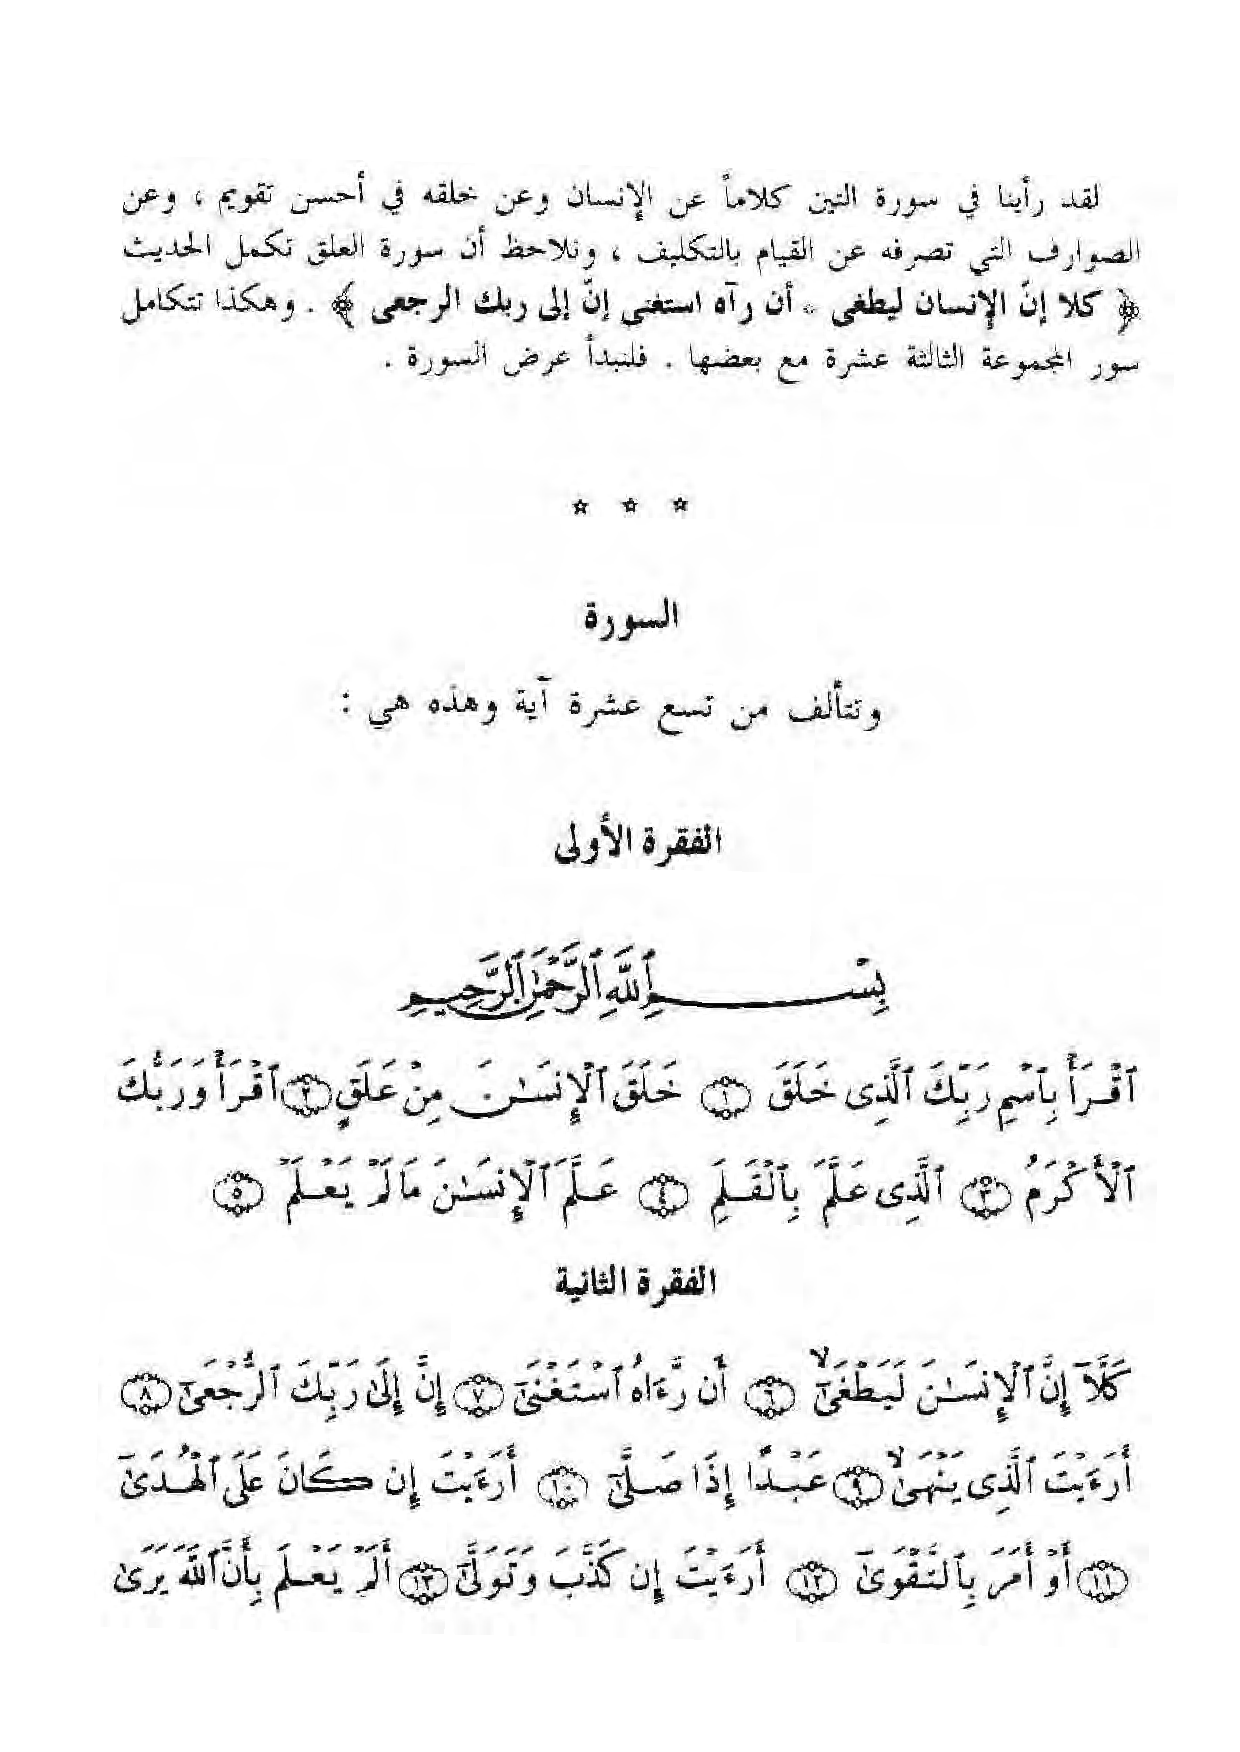 لقد رأينا في سورة التين كلاماً عن الإنسان وعن خلقه في أحسن تقويم ، وعن
الصوارف التي تصرفه عن القيام بالتكليف ، ونلاحظ أن سورة العلق تكمل الحديث
﴿ كلا إنّ الإنسان ليطغى * أن رآه استغنى إنّ إلى ربك الرجعى ﴾ . وهكذا تتكامل
سور المجموعة الثالثة عشرة مع بعضها . فلنبدأ عرض السورة .
* * *
السورة
وتتألف من تسع عشرة آية وهذه هي :
الفقرة الأولى
بِسْمِ ٱللَّهِ ٱلرَّحْمَٰنِ ٱلرَّحِيمِ
ٱقْرَأْ بِٱسْمِ رَبِّكَ ٱلَّذِى خَلَقَ ١ خَلَقَ ٱلْإِنسَٰنَ مِنْ عَلَقٍ ٢ ٱقْرَأْ وَرَبُّكَ
ٱلْأَكْرَمُ ٣ ٱلَّذِى عَلَّمَ بِٱلْقَلَمِ ٤ عَلَّمَ ٱلْإِنسَٰنَ مَا لَمْ يَعْلَمْ ٥
الفقرة الثانية
كَلَّآ إِنَّ ٱلْإِنسَٰنَ لَيَطْغَىٰٓ ٦ أَن رَّءَاهُ ٱسْتَغْنَىٰٓ ٧ إِنَّ إِلَىٰ رَبِّكَ ٱلرُّجْعَىٰٓ ٨
أَرَءَيْتَ ٱلَّذِى يَنْهَىٰ ٩ عَبْدًا إِذَا صَلَّىٰٓ ١٠ أَرَءَيْتَ إِن كَانَ عَلَى ٱلْهُدَىٰٓ
١١ أَوْ أَمَرَ بِٱلتَّقْوَىٰٓ ١٢ أَرَءَيْتَ إِن كَذَّبَ وَتَوَلَّىٰٓ ١٣ أَلَمْ يَعْلَم بِأَنَّ ٱللَّهَ يَرَىٰ